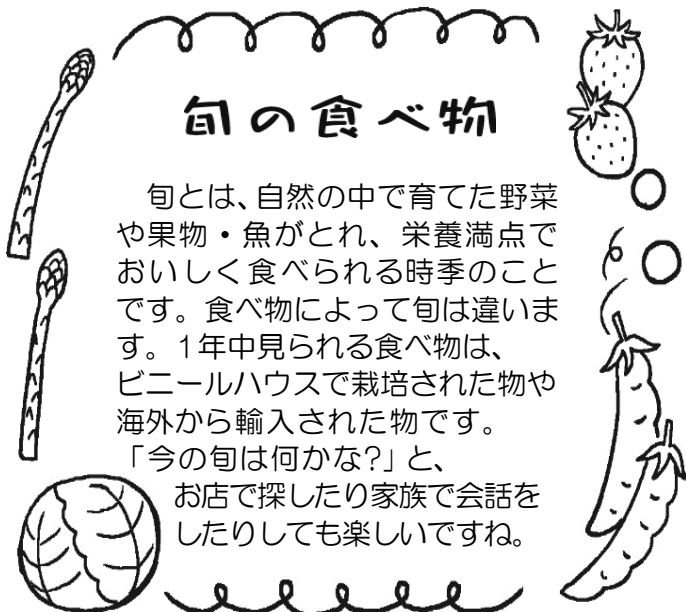 旬の食べ物
旬とは、自然の中で育てた野菜
や果物・魚がとれ、栄養満点で
おいしく食べられる時季のこと
です。食べ物によって旬は違いま
す。1年中見られる食べ物は、
ビニールハウスで栽培された物や
海外から輸入された物です。
「今の旬は何かな?」と、
お店で探したり家族で会話を
したりしても楽しいですね。